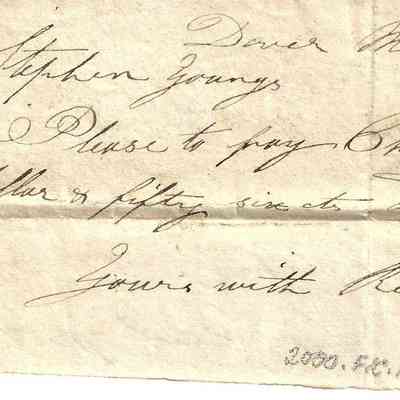 Dover M
Stephen Youngs
Please to pay Ch
llar & fifty six cts
Yours with Re
2000.FIC.